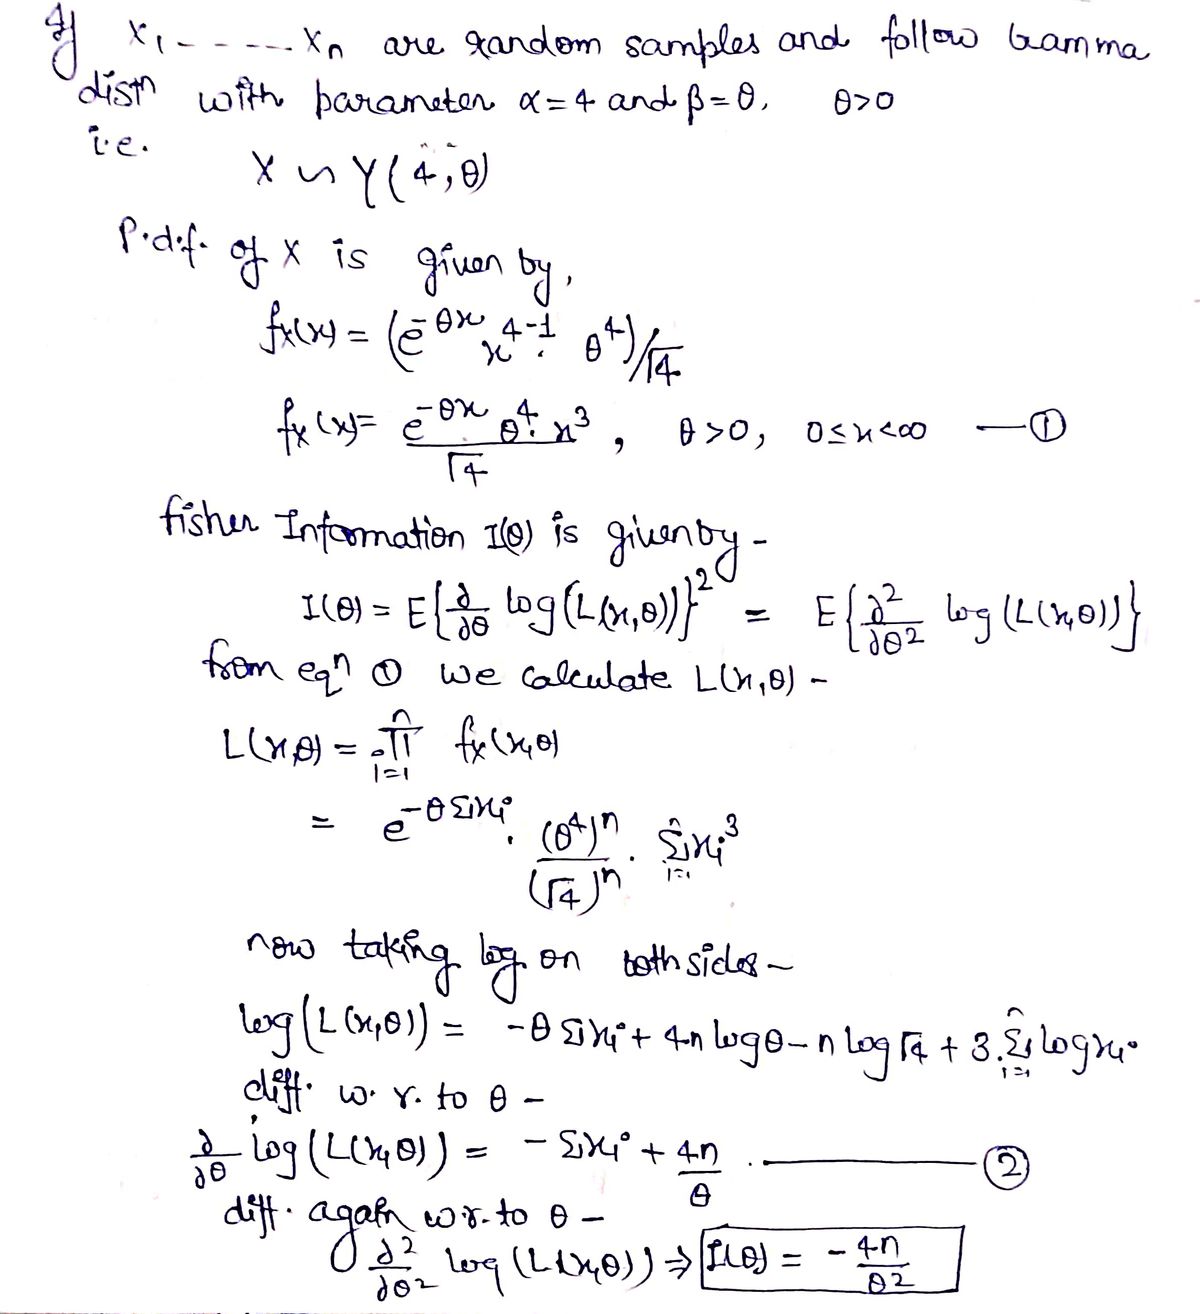 If X₁ - - - - - Xₙ are random samples and follow Gamma
distn with parameter α=4 and β=θ, θ>0
i.e.
X ~ γ(4,θ)
P.d.f. of X is given by,
fx(x) = (e^-θx x^4-1 . θ^4)/Γ4
fx(x) = e^-θx . θ^4 . x^3 / Γ4 , θ>0, 0≤x<∞ —①
fisher Information I(θ) is given by -
I(θ) = E{∂/∂θ log(L(x,θ))}^2 = E{∂^2/∂θ^2 log(L(x,θ))}
from eqn ① we calculate L(x,θ) -
L(x,θ) = ∏_{i=1}^{n} fx(x,θ)
= e^-θΣxi . (θ^4)^n/(Γ4)^n . Σ_{i=1}^{n} xi^3
now taking log on both sides -
log(L(x,θ)) = -θΣxi + 4n logθ - n log Γ4 + 3.Σ_{i=1}^{n} log xi
diff. w. r. to θ -
∂/∂θ log(L(x,θ)) = - Σxi + 4n/θ . —②
diff. again w.r. to θ -
∂^2/∂θ^2 log(L(x,θ)) ⇒ I(θ) = - 4n/θ^2